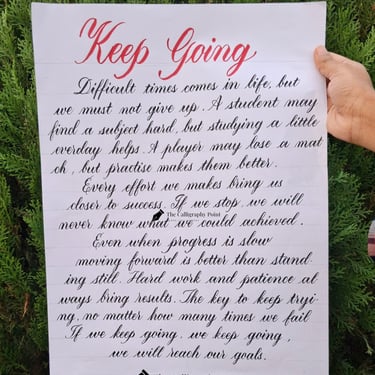 Keep Going
Difficult times comes in life, but
we must not give up. A student may
find a subject hard, but studying a little
everday helps. A player may lose a mat
ch, but practise makes them better.
Every effort we makes bring us
closer to success. If we stop, we will
The Calligraphy Point
never know what we could achieved.
Even when progress is slow
moving forward is better than stand
ing still. Hard work and patience al
ways bring results. The key to keep tryi
ng, no matter how many times we fail
If we keep going, we keep going,
we will reach our goals.